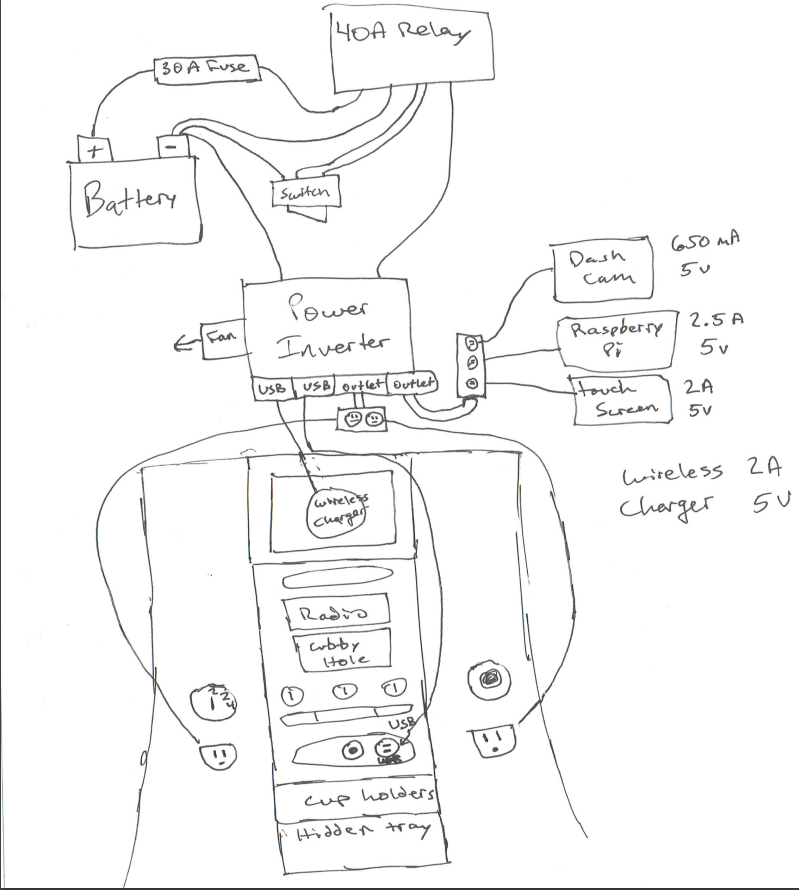 40A Relay
30A Fuse
+
-
Battery
Switch
Power
Inverter
Fan
USB
USB
Outlet
Outlet
Dash
Cam
650 mA
5v
Raspberry
Pi
2.5 A
5v
touch
Screen
2A
5v
Wireless
Charger
2A
5v
Wireless
Charger
Radio
Cubby
Hole
USB
Cup holders
Hidden tray